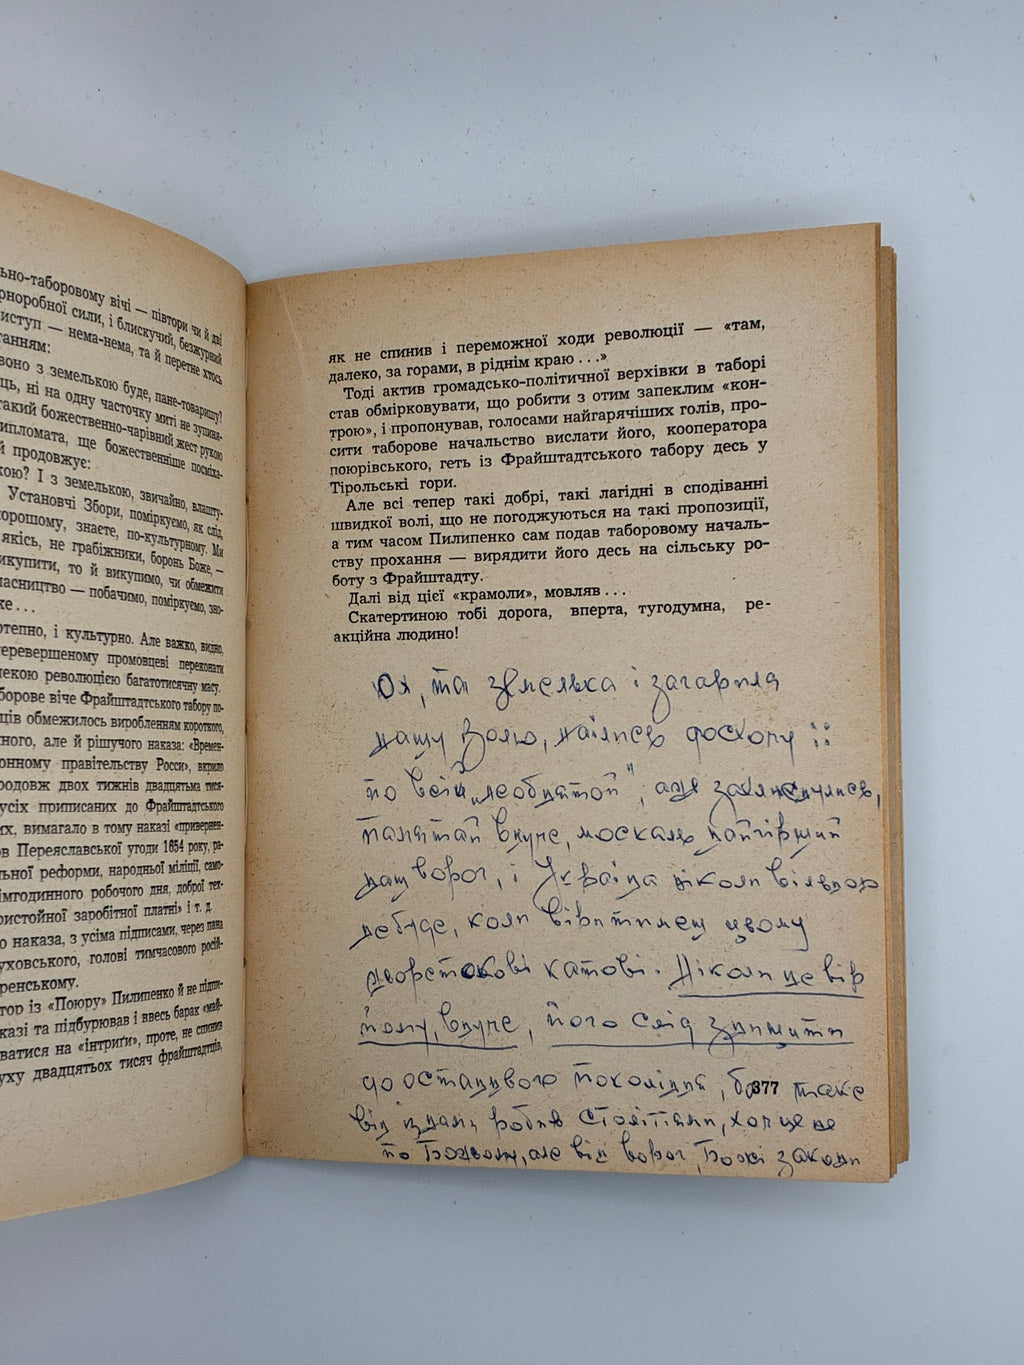 ьно-таборовому вічі — півтори чи й дві
рноробної сили, і блискучий, безжурний
иступ — нема-нема, та й перетне хтось
танням:
воно з земелькою буде, пане-товаришу?
ць, ні на одну часточку миті не зупиня-
такий божественно-чарівний жест рукою
ипломата, ще божественніше посміха-
й продовжує:
кою? І з земелькою, звичайно, влашту-
Установчі Збори, поміркуємо, як слід,
орошому, знаєте, по-культурному. Ми
якісь, не грабіжники, боронь Боже, —
икупити, то й викупимо, чи обмежити
ласництво — побачимо, поміркуємо, зно-
же...
отепно, і культурно. Але важко, видно,
перевершеному промовцеві переконати
лекою революцією багатотисячну масу.
борове віче Фрайштадтського табору по-
ців обмежилось виробленням короткого,
ного, але й рішучого наказа: «Времен-
онному правітельству Росси», вкрило
родовж двох тижнів двадцятьма тися-
усіх приписаних до Фрайштадтського
их, вимагало в тому наказі «привернен-
ов Переяславської угоди 1654 року, ра-
льної реформи, народньої міліції, само-
імгодинного робочого дня, доброї тех-
ристойної заробітної платні» і т. д.
о наказа, з усіма підписами, через пана
уховського, голові тимчасового росій-
ренському.
тор із «Поюру» Пилипенко й не підпи-
казі та підбурював і ввесь барак «май-
ватися на «інтриґи», проте, не спинив
уху двадцятьох тисяч фрайштадтців,
як не спинив і переможної ходи революції — «там,
далеко, за горами, в ріднім краю...»
Тоді актив громадсько-політичної верхівки в таборі
став обмірковувати, що робити з отим запеклим «кон-
трою», і пропонував, голосами найгарячіших голів, про-
сити таборове начальство вислати його, кооператора
поюрівського, геть із Фрайштадтського табору десь у
Тірольські гори.
Але всі тепер такі добрі, такі лагідні в сподіванні
швидкої волі, що не погоджуються на такі пропозиції,
а тим часом Пилипенко сам подав таборовому началь-
ству прохання — вирядити його десь на сільську ро-
боту з Фрайштадту.
Далі від цієї «крамоли», мовляв...
Скатертиною тобі дорога, вперта, тугодумна, ре-
акційна людино!
Ой, та земелька і загарбила
нашу Волю, наїлись досхочу
по всій „необнятой", аде
памятай внуче, москаль найгірший
наш ворог, і Україна ніколи вільною
небуде, коли віритимеш цьому
жорстокові катові. Ніколи не вір
йому, внуче, його слід нищити
до останнього покоління, бо таке
він із нами робив століттями, хоч це не
по Божому, але він ворог, Божі закони
377